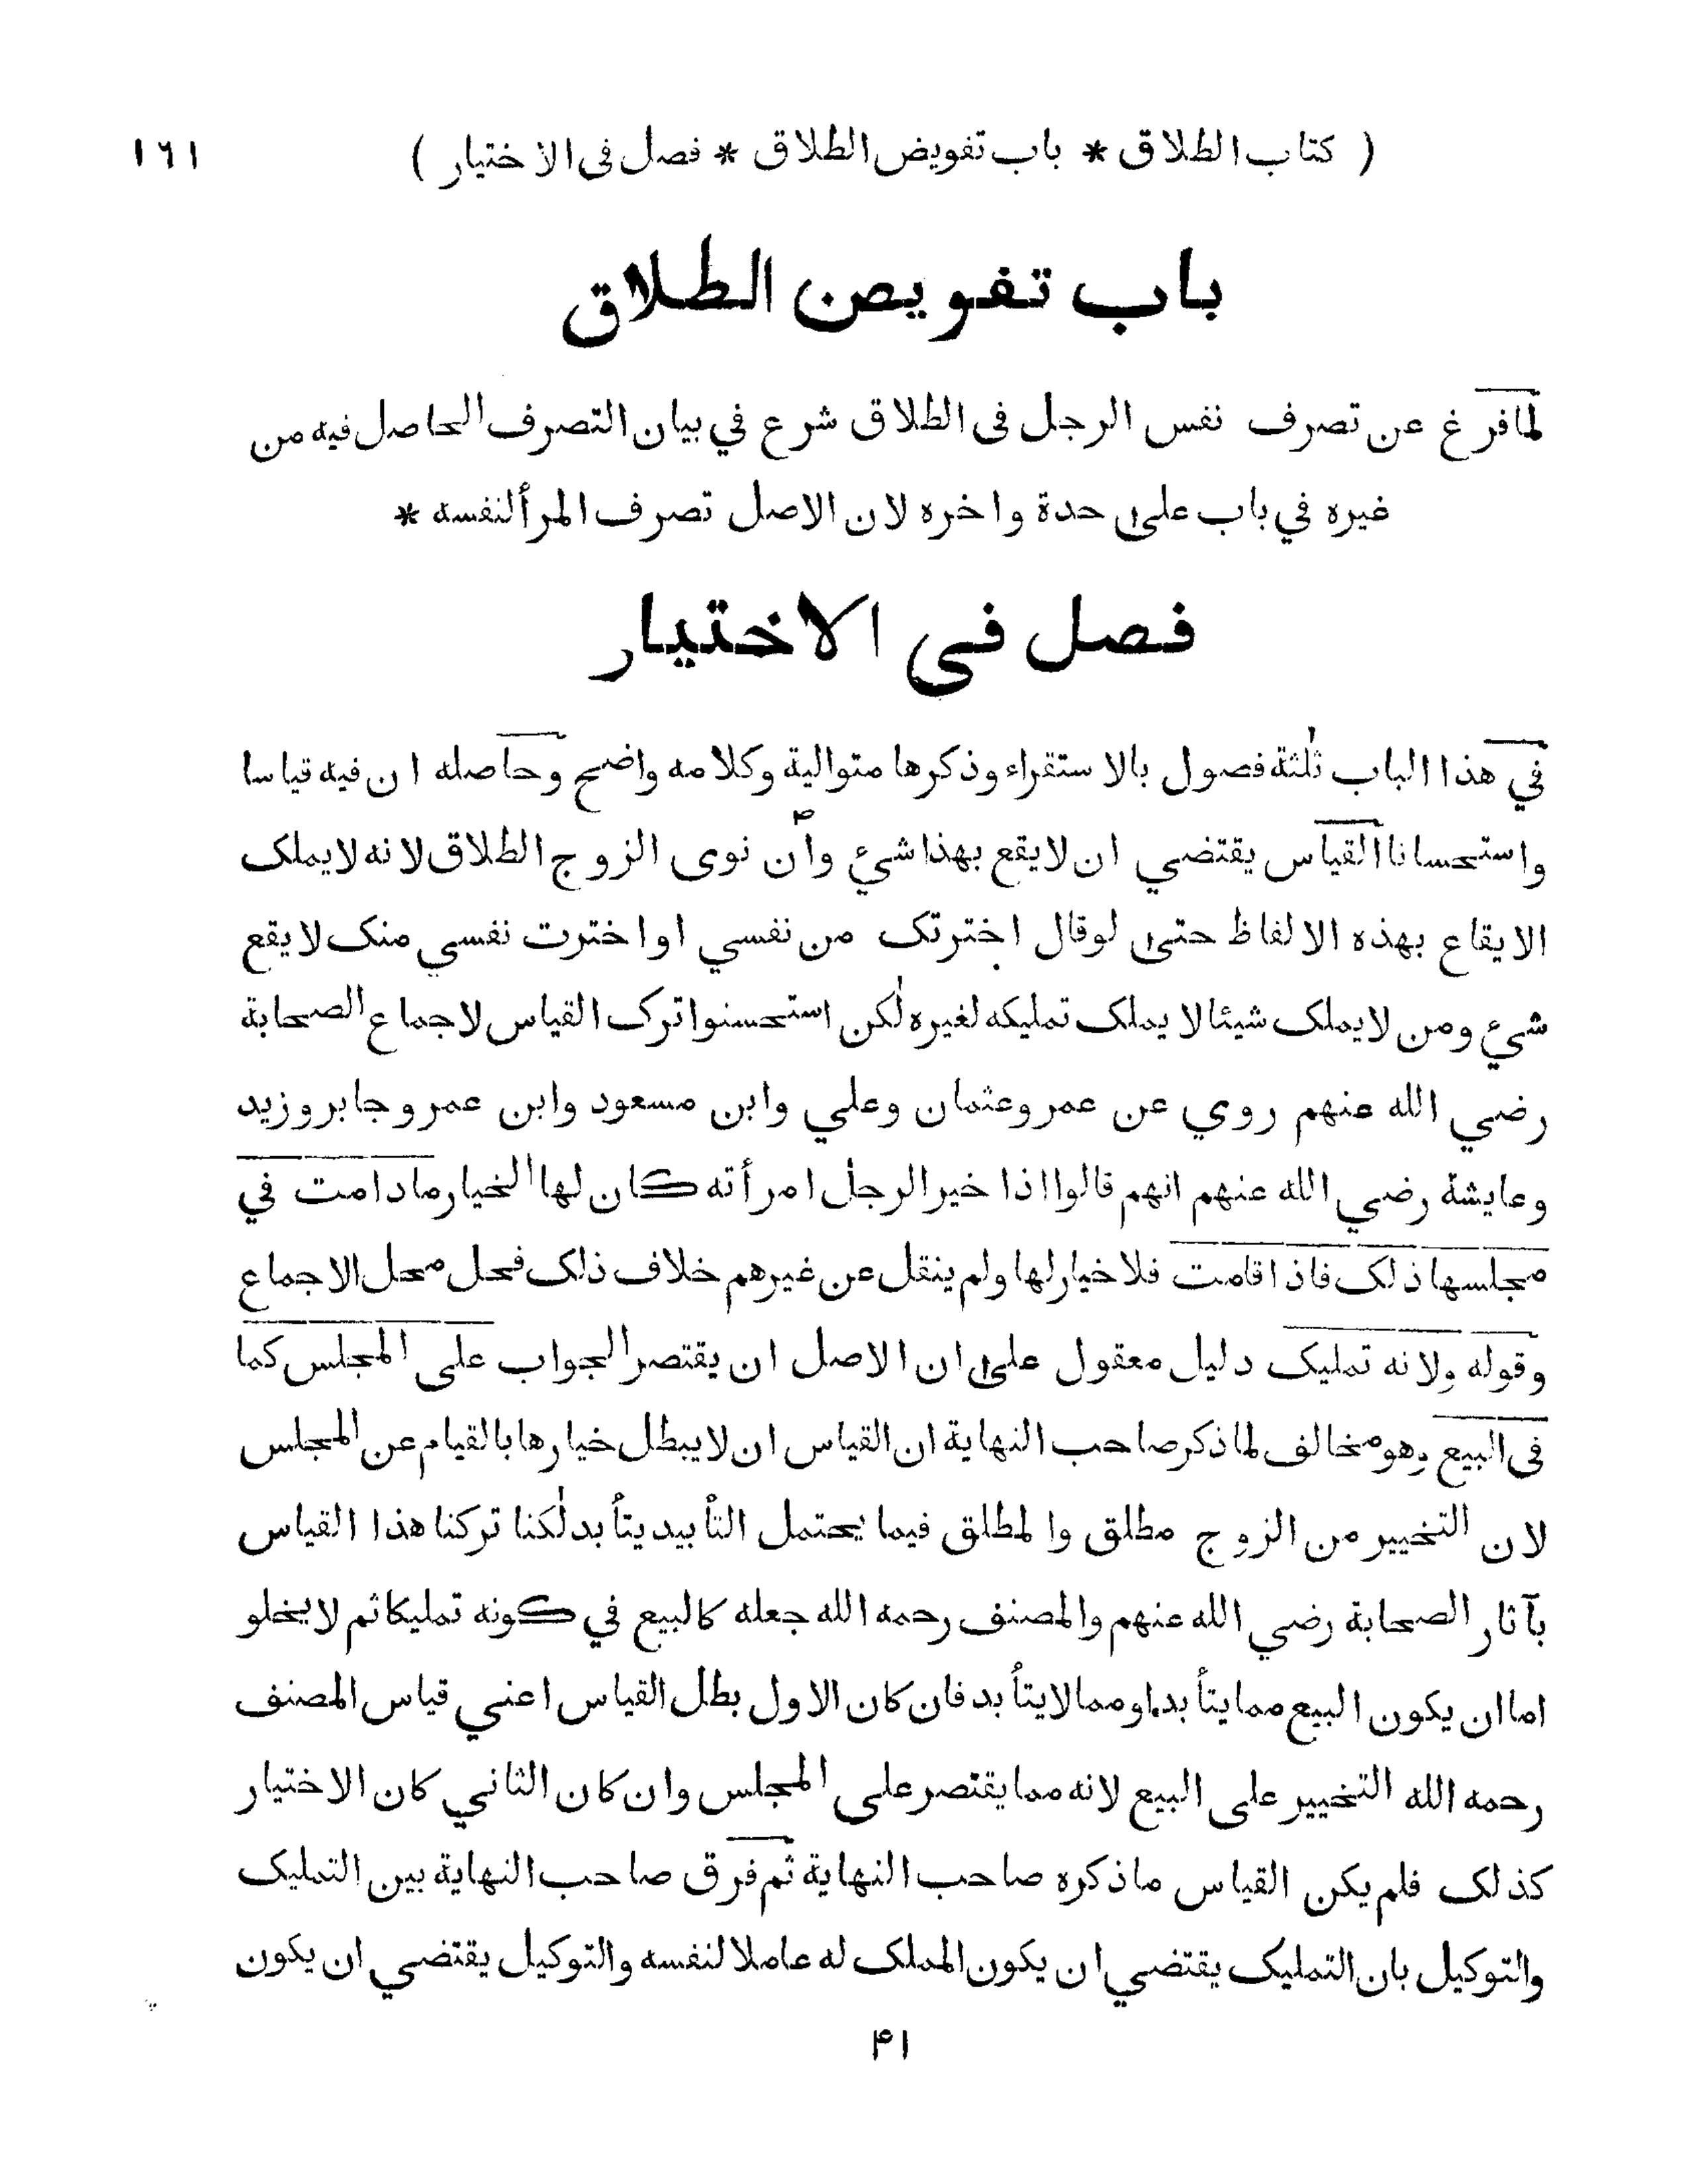 ( كتاب الطلاق * باب تفويض الطلاق * فصل فى الاختيار ) ١٦١
باب تفويض الطلاق
لما فرغ عن تصرف نفس الرجل فى الطلاق شرع في بيان التصرف الحاصل فيه من
غيره في باب على حدة واخره لان الاصل تصرف المرألنفسه *
فصل فى الاختيار
في هذا الباب ثلثة فصول بالاستقراء وذكرها متوالية وكلامه واضح وحاصله ان فيه قياسا
واستحسانا القياس يقتضي ان لايقع بهذا شيئ وان نوى الزوج الطلاق لانه لايملك
الايقاع بهذه الالفاظ حتى لوقال اخترتك من نفسي اواخترت نفسي منك لايقع
شيئ ومن لايملك شيئا لا يملك تمليكه لغيره لكن استحسنوا ترك القياس لاجماع الصحابة
رضي الله عنهم روي عن عمر وعثمان وعلي وابن مسعود وابن عمر وجابر وزيد
وعايشة رضي الله عنهم انهم قالوا اذا خير الرجل امرأته كان لها الخيار مادامت في
مجلسها ذلك فاذا قامت فلا خيار لها ولم ينقل عن غيرهم خلاف ذلك فحل محل الاجماع
وقوله ولانه تمليك دليل معقول على ان الاصل ان يقتصر الجواب على المجلس كما
فى البيع وهو مخالف لما ذكر صاحب النهاية ان القياس ان لايبطل خيارها بالقيام عن المجلس
لان التخيير من الزوج مطلق والمطلق فيما يحتمل التأبيد يتأبد لكنا تركنا هذا القياس
بآثار الصحابة رضي الله عنهم والمصنف رحمه الله جعله كالبيع في كونه تمليكا ثم لايخلو
اما ان يكون البيع مما يتأبد او مما لايتأبد فان كان الاول بطل القياس اعني قياس المصنف
رحمه الله التخيير على البيع لانه مما يقتصر على المجلس وان كان الثاني كان الاختيار
كذلك فلم يكن القياس ماذكره صاحب النهاية ثم فرق صاحب النهاية بين التمليك
والتوكيل بان التمليك يقتضي ان يكون المملك له عاملا لنفسه والتوكيل يقتضي ان يكون
۴۱